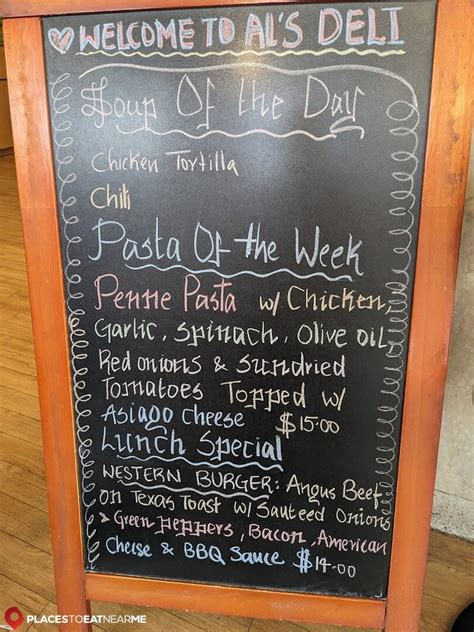 WELCOME TO AL'S DELI
Soup Of the Day
Chicken Tortilla
Chili
Pasta Of the Week
Penne Pasta w/ Chicken,
Garlic, spinach, Olive oil,
Red onions & sundried
Tomatoes Topped w/
Asiago cheese $15.00
Lunch Special
WESTERN BURGER: Angus Beef
on Texas Toast w/ Sauteed Onions
Green peppers, Bacon, American
Cheese & BBQ Sauce $14.00
PLACESTOEATNEARME